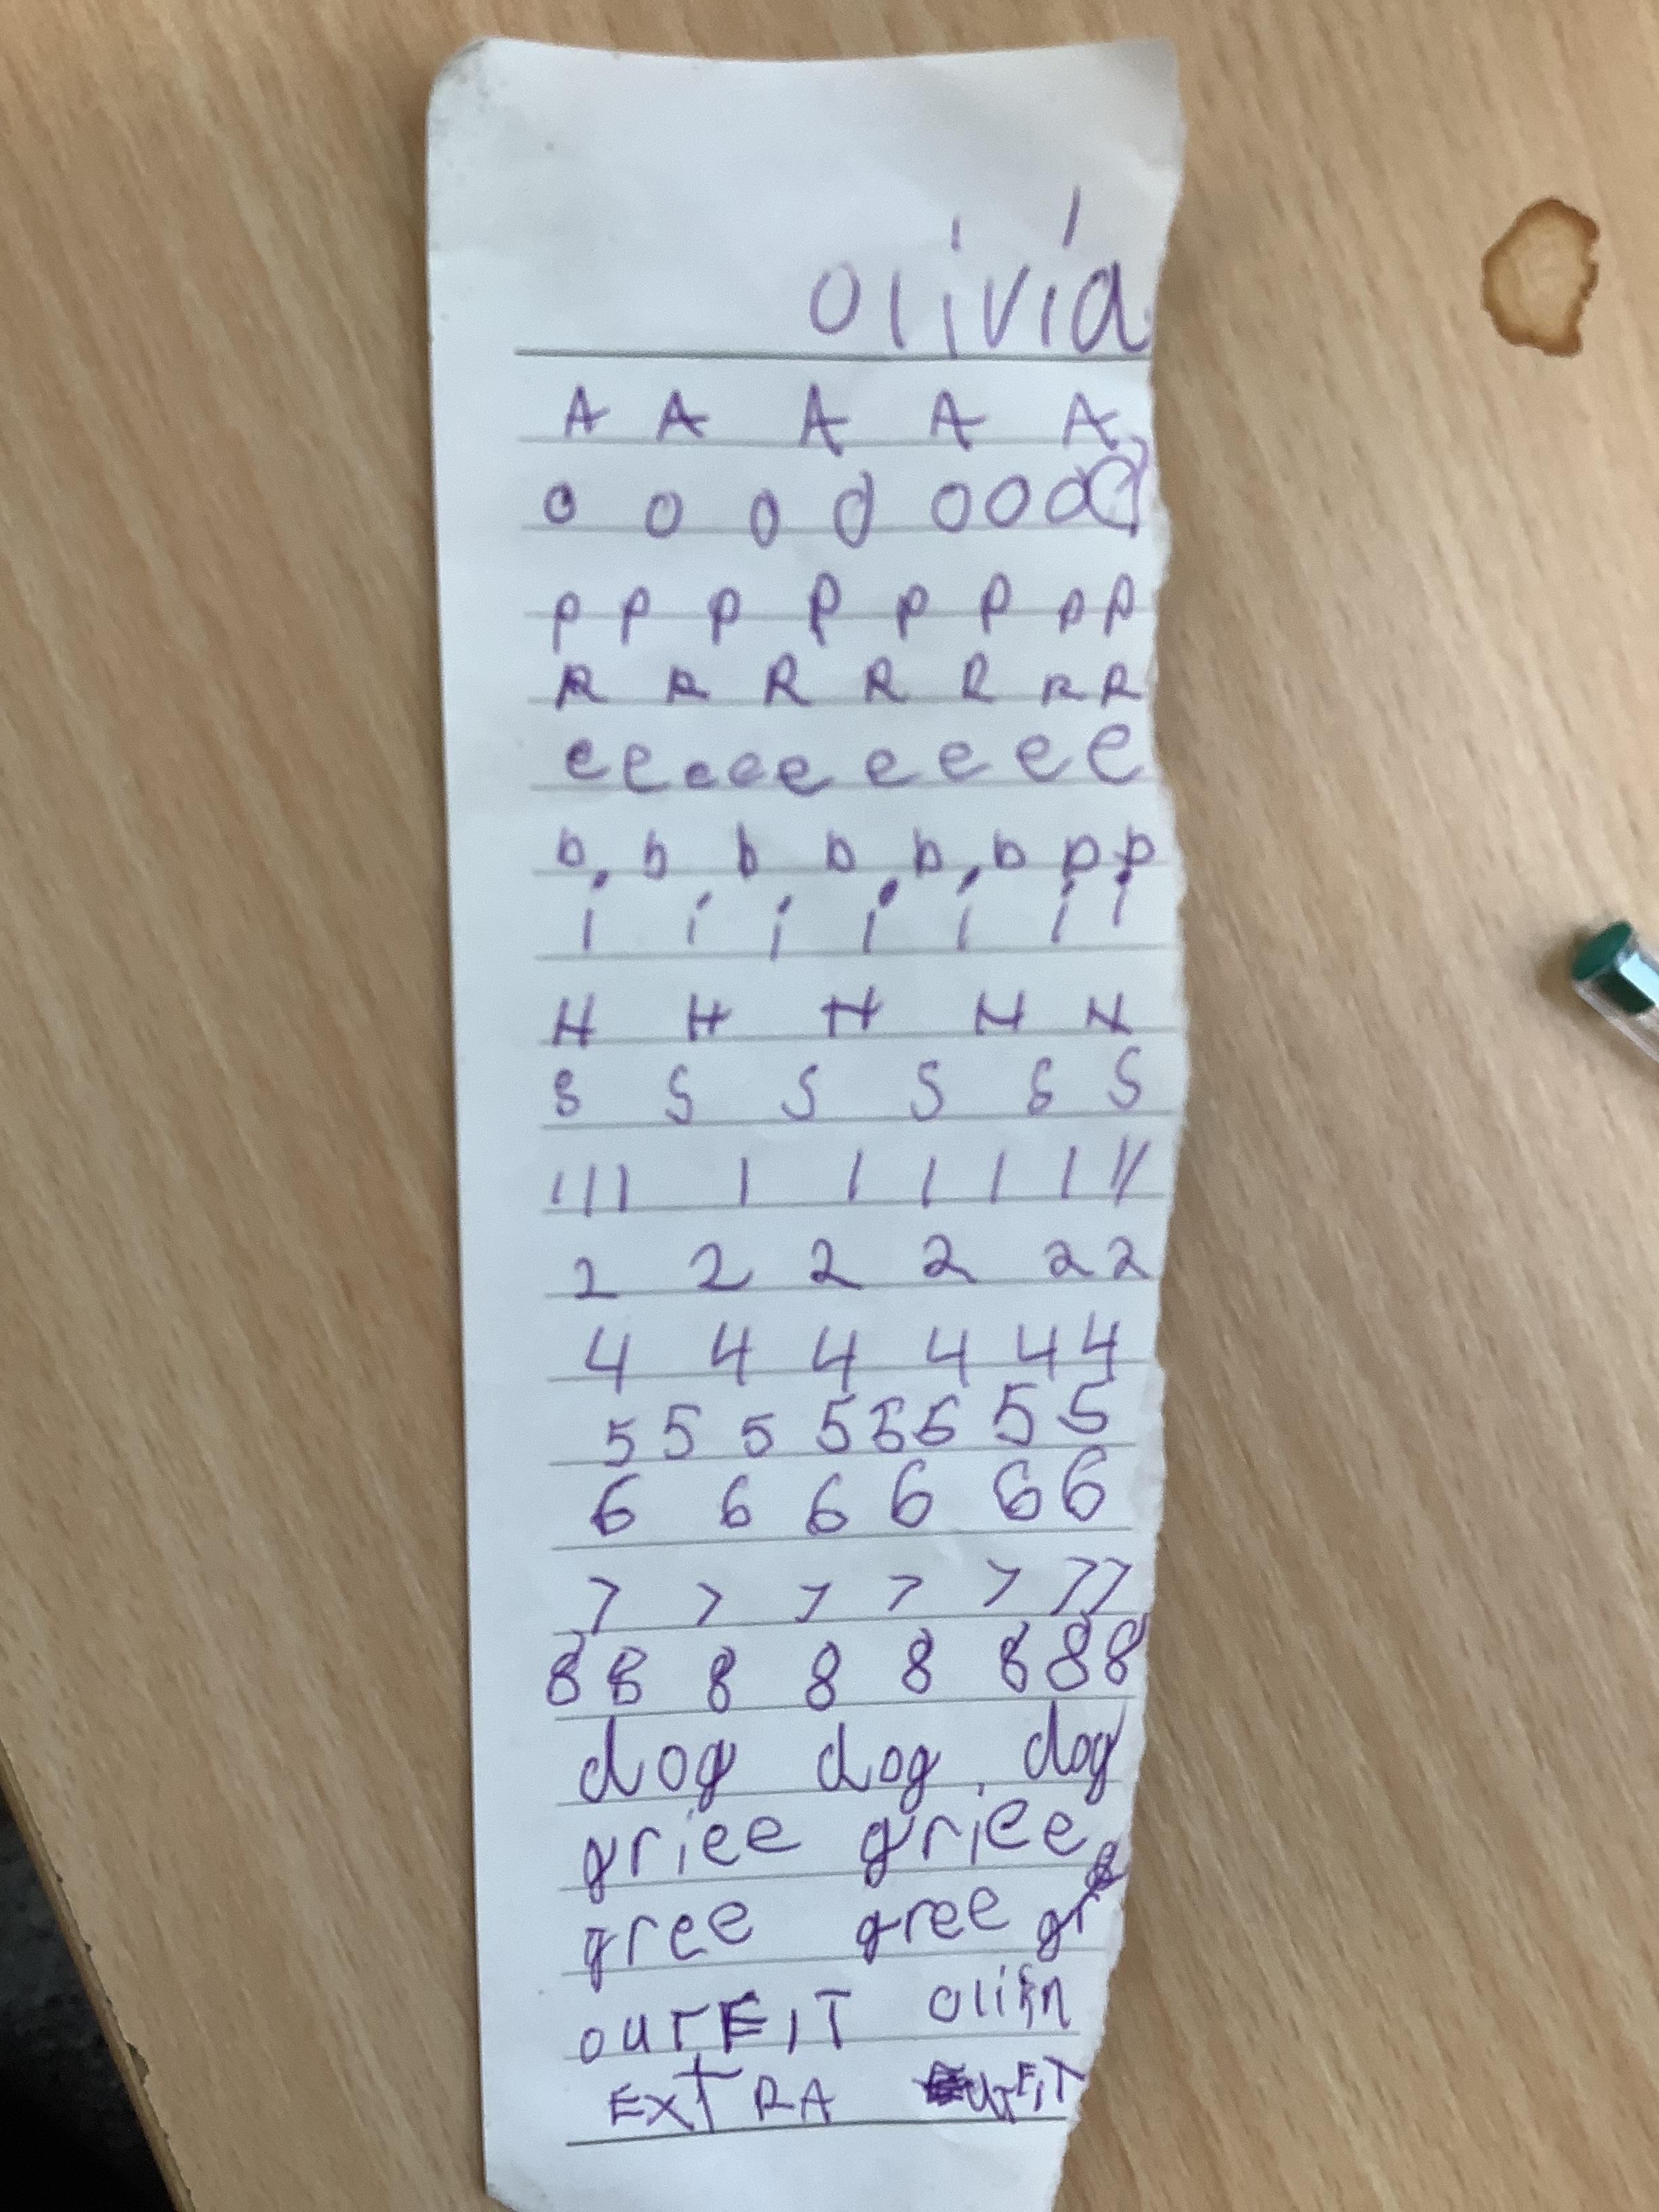 olivia
A A A A A
o o o o o o o
p p p p p p p p
R R R R R R R
e e e e e e e e e
b b b b b b p p
i i i i i i i
H H H H H
S S S S S S
1 1 1 1 1 1 1 1 1 1
2 2 2 2 2 2
4 4 4 4 4 4
5 5 5 5 5 5 5 5
6 6 6 6 6 6
7 7 7 7 7 7 7
8 8 8 8 8 8 8 8
dog dog. dog
griee griee
gree gree gr
ourFIT
EXTRA UTFIT